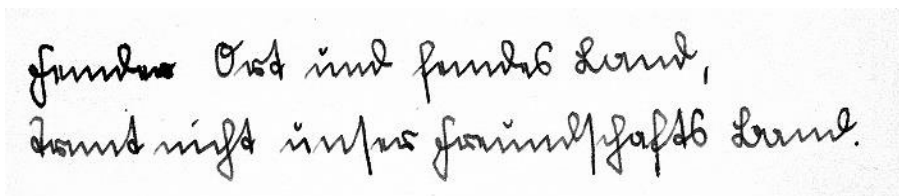 Fremder Ort und fremdes Land,
trennt nicht unser Freundschafts Band.